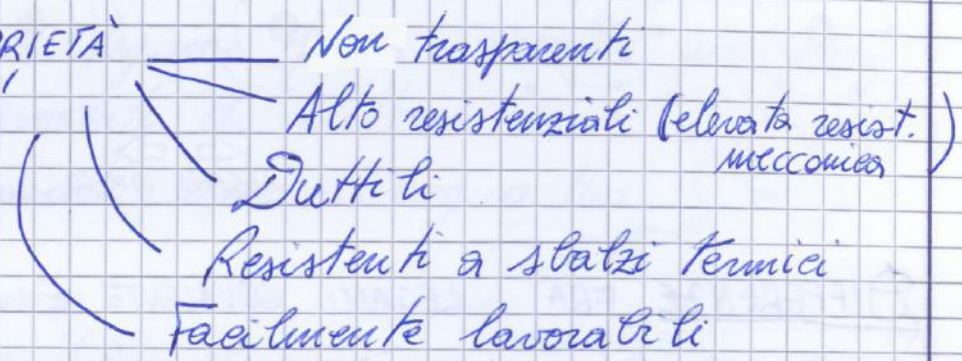 RIETÀ
Non trasparenti
Alto resistenziali (elevata resist.
meccanica)
Duttili
Resistenti a sbalzi termici
Facilmente lavorabili